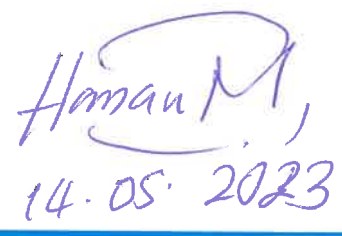 Haman M,
14.05.2023